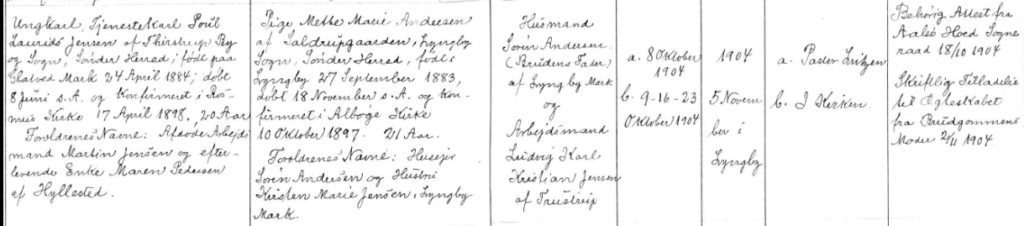 Ungkarl, Tjenestekarl Poul
Laurids Jensen af Thirstrup By
og Sogn, Sønder Herred; født paa
Glatved Mark 24 April 1884; døbt
8 Juni s.A. og Konfirmeret i Ros-
mus Kirke 17 April 1898. 20 Aar
Forældrenes Navne: Afdøde Arbejds
mand Martin Jensen og efter-
levende Enke Maren Pedersen
af Hyllested.
Pige Mette Marie Andersen
af Saldrupgaarden, Lyngby
Sogn, Sønder Herred, født i
Lyngby 27 September 1883,
døbt 18 November s.A. og Kon-
firmeret i Albøge Kirke
10 Oktober 1897. 21 Aar.
Forældrenes Navne: Husejer
Sören Andersen og Hustru
Kirsten Marie Jensen, Lyngby
Mark.
Husmand
Sören Andersen
(Brudens Fader)
af Lyngby Mark
og
Arbejdsmand
Ludvig Karl
Kristian Jensen
af Trustrup
a. 8 Oktober
1904
b. 9-16-23
Oktober 1904
1904
5 Novem
ber i
Lyngby
a. Pastor
b. I Kirken.
Behørig Attest fra
Aalsø Hoed Sogne
raad 18/10 1904
Skriftlig Tilladelse
til Ægteskabet
fra Brudgommens
Moder 2/11 1904.